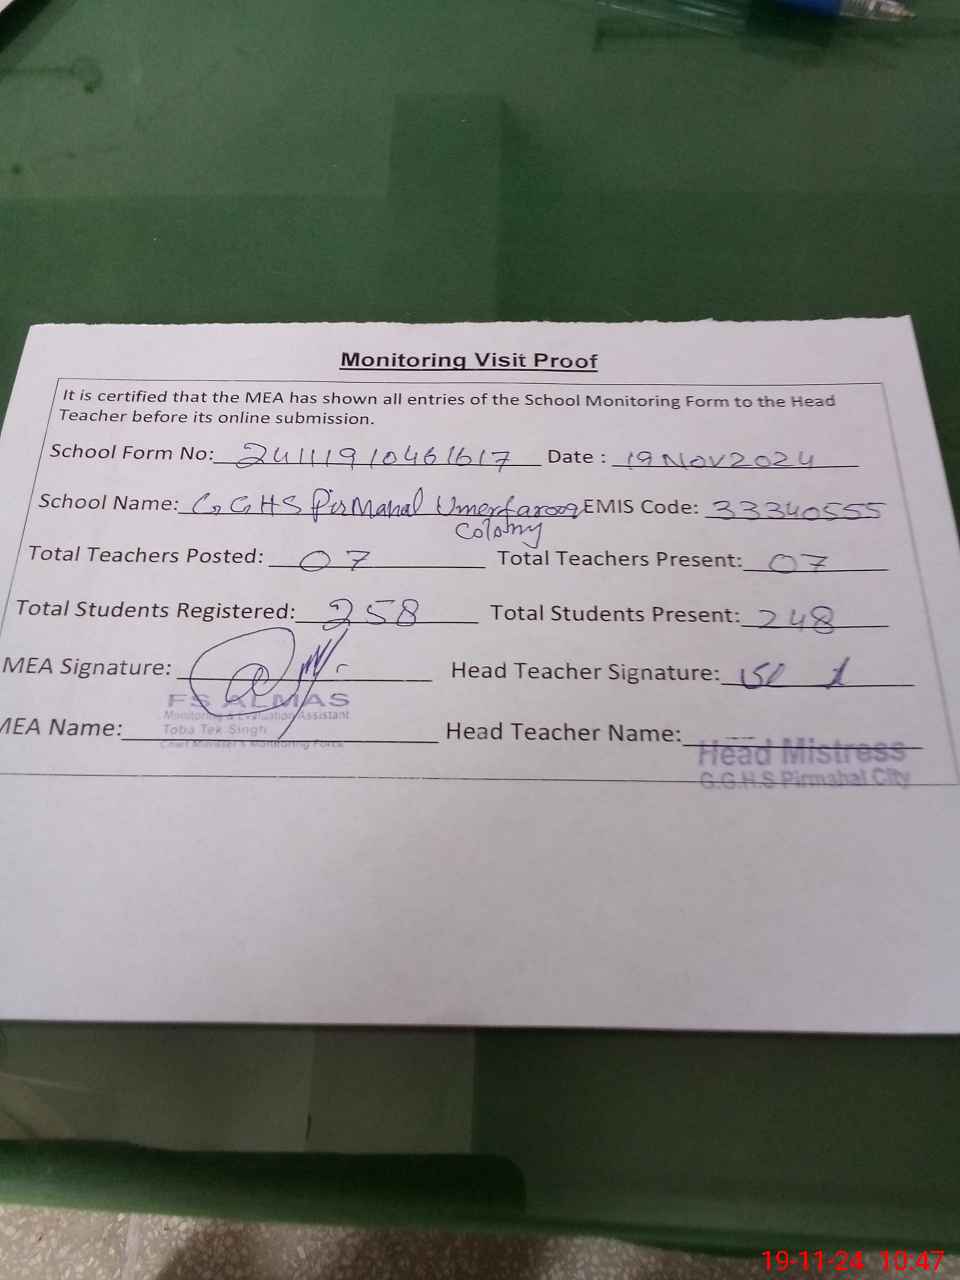 Monitoring Visit Proof
It is certified that the MEA has shown all entries of the School Monitoring Form to the Head
Teacher before its online submission.
School Form No: 24111910461617 Date : 19 Nov 2024
School Name: G.G.H.S PirMahal Umerfarooq EMIS Code: 33340555
Colony
Total Teachers Posted: 07 Total Teachers Present: 07
Total Students Registered: 258 Total Students Present: 248
MEA Signature: Head Teacher Signature:
ALMAS
Monitoring & Evaluation Assistant
Toba Tek Singh
MEA Name: Head Teacher Name:
Chief Minister's Monitoring Force
Head Mistress
G.G.H.S Pirmahal City
19-11-24 10:47